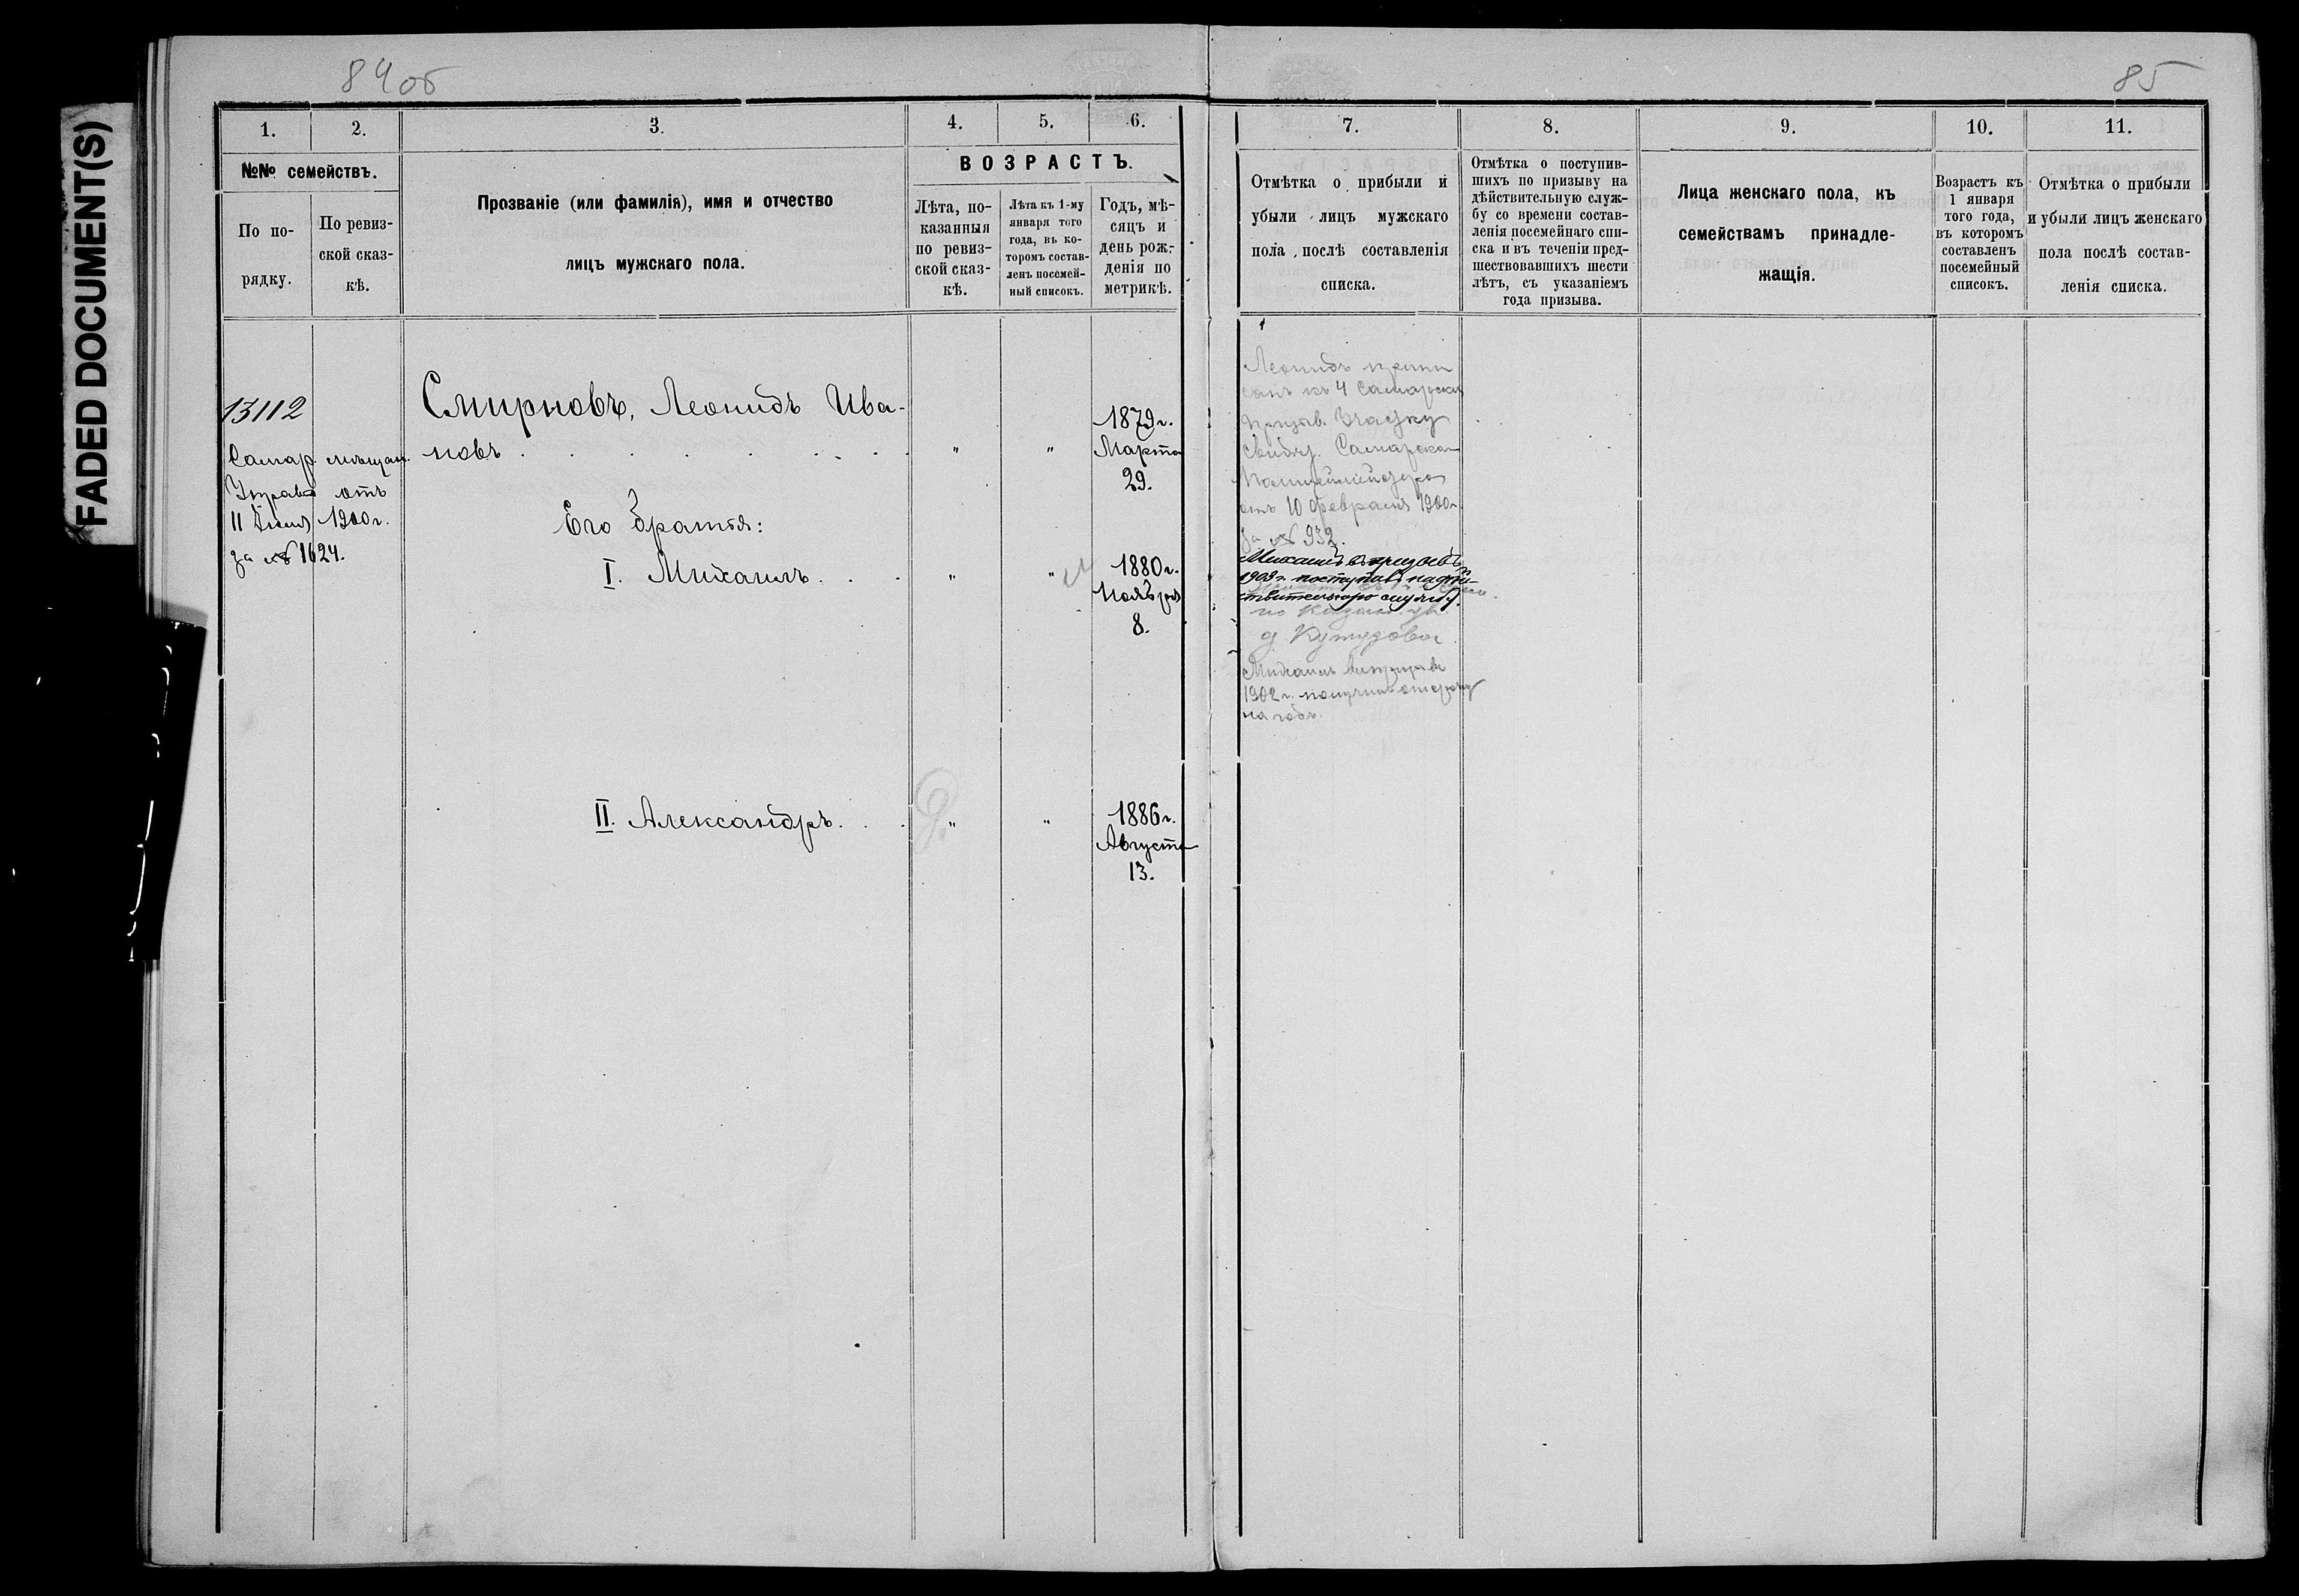 FADED DOCUMENT(S)
84 об
85
1.
2.
3.
4.
5.
6.
7.
8.
9.
10.
11.
№№ семействъ.
По по-
рядку.
По ревиз-
ской сказ-
кѣ.
Прозваніе (или фамилія), имя и отчество
лицъ мужскаго пола.
ВОЗРАСТЪ.
Лѣта, по-
казанныя
по ревиз-
ской сказ-
кѣ.
Лѣта къ 1-му
января того
года, въ ко-
торомъ состав-
ленъ посемей-
ный списокъ.
Годъ, мѣ-
сяцъ и
день рож-
денія по
метрикѣ.
Отмѣтка о прибыли и
убыли лицъ мужскаго
пола послѣ составленія
списка.
Отмѣтка о поступив-
шихъ по призыву на
дѣйствительную служ-
бу со времени состав-
ленія посемейнаго спи-
ска и въ теченіи пред-
шествовавшихъ шести
лѣтъ, съ указаніемъ
года призыва.
Лица женскаго пола, къ
семействамъ принадле-
жащія.
Возрастъ къ
1 января
того года,
въ которомъ
составленъ
посемейный
списокъ.
Отмѣтка о прибыли
и убыли лицъ женскаго
пола послѣ состав-
ленія списка.
13112
Самар. мѣщан.
Управа отъ
11 1900 г.
за № 1624.
Смирновъ, Леонидъ Ива-
новъ . . . . . . . . " "
1879 г.
Марта
29.
Его братья:
I. Михаилъ. . . " "
1880 г.
Ноября
8.
II. Александръ. . . " "
1886 г.
Августа
13.
Леонидъ припи
санъ къ 4 Самарском
призыв. Участку
свидѣт. Самарскаго
Полицеймейстера
отъ 10 Февраля 1900 г.
за № 932.
Михаилъ въ призывъ
1903 г. поступилъ на дѣй-
ствительную службу.
по Казан.
д Кутузова
Михаилъ въ призывъ
1902 г. получилъ отсрочку
на годъ.